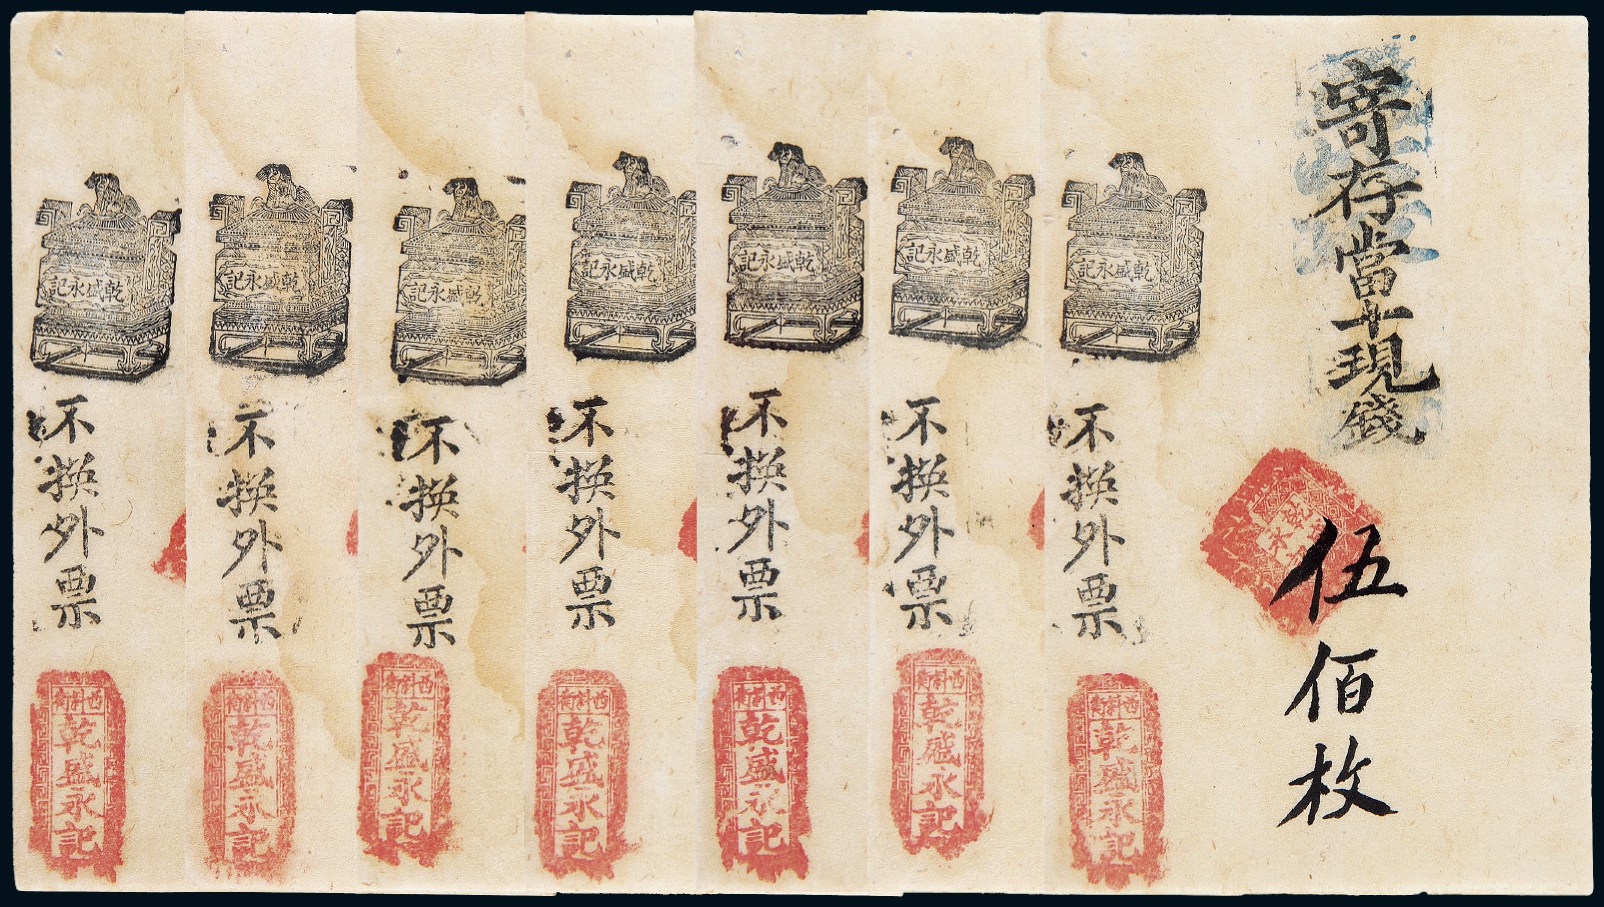 寄存當十現錢
伍佰枚
乾盛永記
不換外票
西斜街
乾盛永記
乾盛永記
不換外票
西斜街
乾盛永記
乾盛永記
不換外票
西斜街
乾盛永記
乾盛永記
不換外票
西斜街
乾盛永記
乾盛永記
不換外票
西斜街
乾盛永記
乾盛永記
不換外票
西斜街
乾盛永記
乾盛永記
不換外票
西斜街
乾盛永記